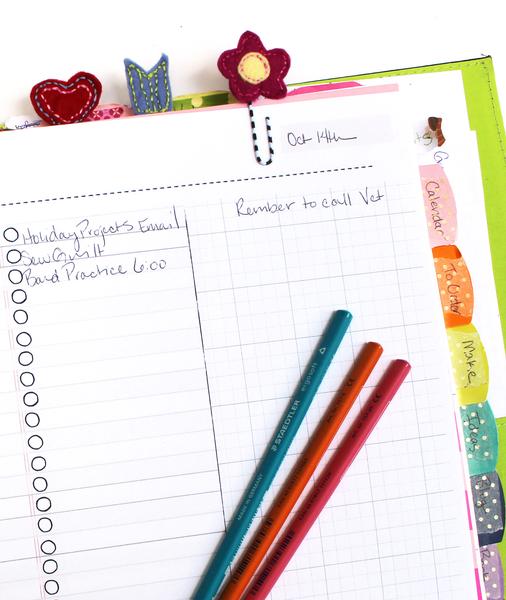 Oct 14th
Rember to call Vet
Holiday Projects Email
Sew Quilt
Band Practice 6:00
Calendar
To Order
Make
Ideas
STAEDTLER ergosoft
MADE IN GERMANY